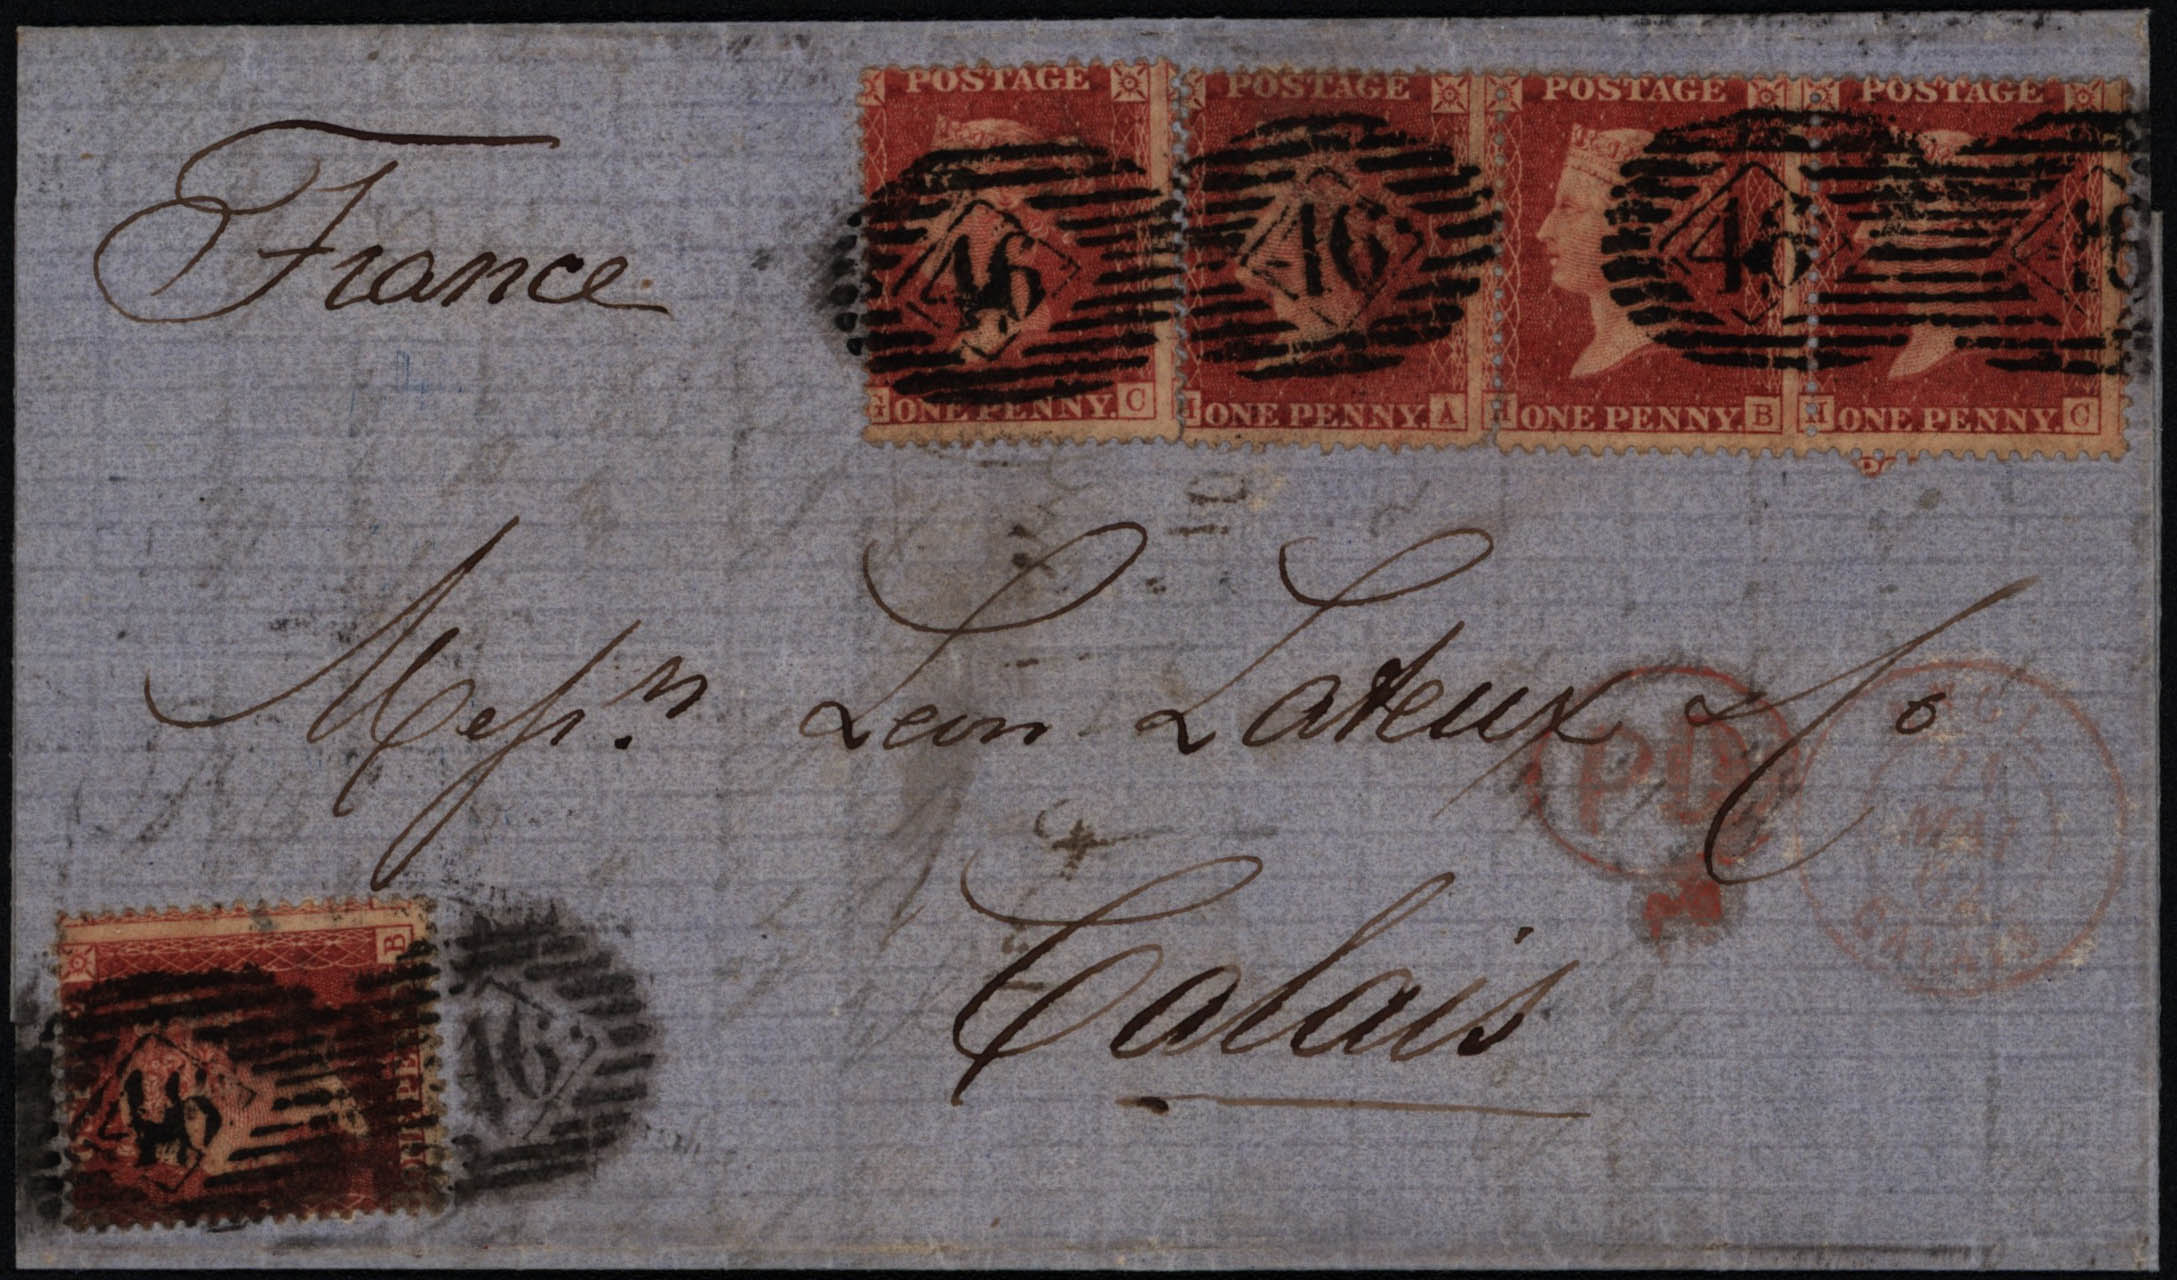 France
POSTAGE POSTAGE POSTAGE POSTAGE
46 46 46
G ONE PENNY. C I ONE PENNY. A I ONE PENNY. B I ONE PENNY. C
Messrs. Leon Lateux & Co
Calais
PD
PD
MAI
CALAIS
B
46
46